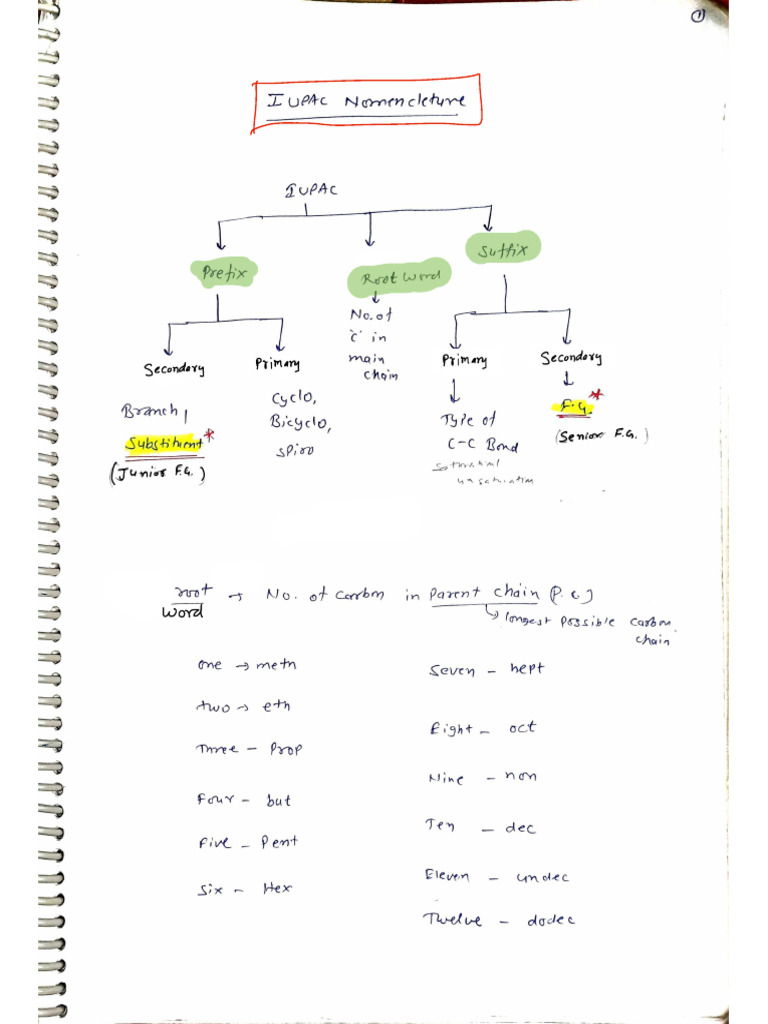 1
IUPAC Nomencleture
IUPAC
Prefix
Root Word
Suffix
No. of
'C' in
main
chain
Secondary
Primary
Primary
Secondary
Branch,
Substituent*
(Junior F.G.)
Cyclo,
Bicyclo,
spiro
Type of
C-C Bond
F.G.*
(Senior F.G.)
root → No. of Carbon in Parent chain (P.C.)
word
longest possible carbon
chain
one → meth
two → eth
Three - Prop
Four - but
Five - Pent
Six - Hex
Seven - hept
Eight - oct
Nine - non
Ten - dec
Eleven - undec
Twelve - dodec